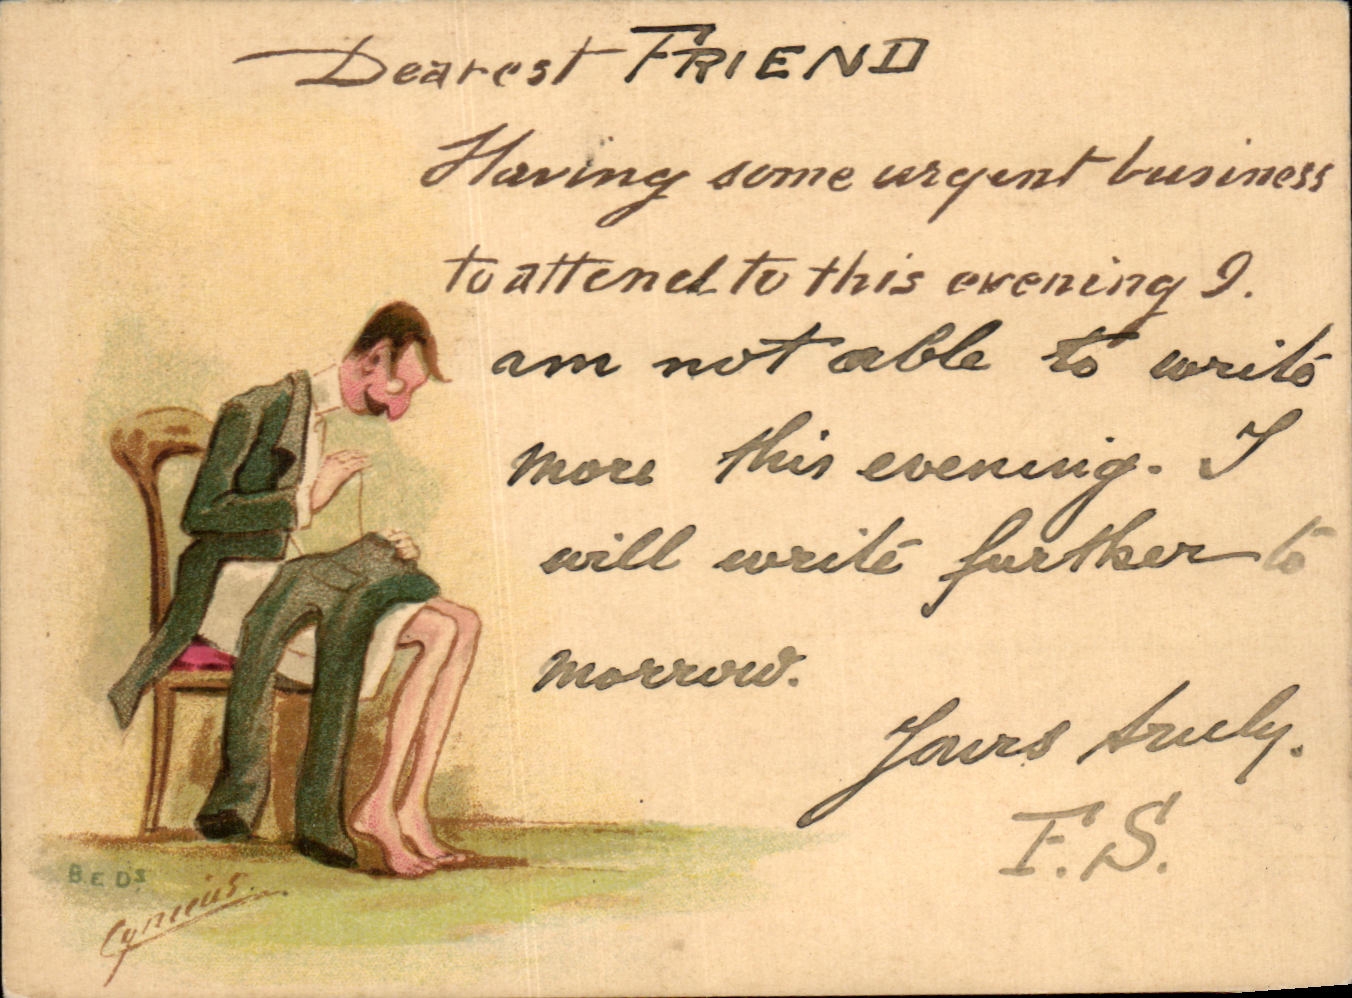 Dearest FRIEND
Having some urgent business
to attend to this evening I.
am not able to write
more this evening. I
will write further to
morrow.
Yours truly.
F.S.
B.E.D'S
Cynicus